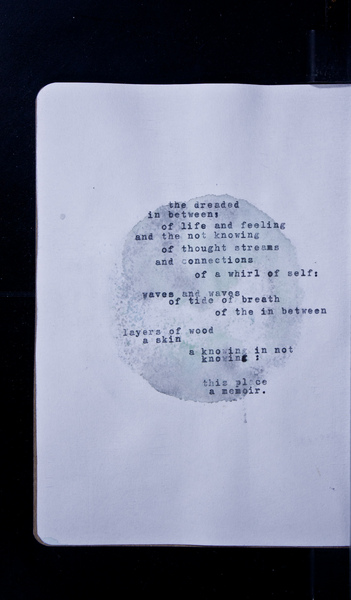 the dreaded
in between;
of life and feeling
and the not knowing
of thought streams
and connections
of a whirl of self:
waves and waves
of tide of breath
of the in between
layers of wood
a skin
a knowing in not
knowing ;
this place
a memoir.